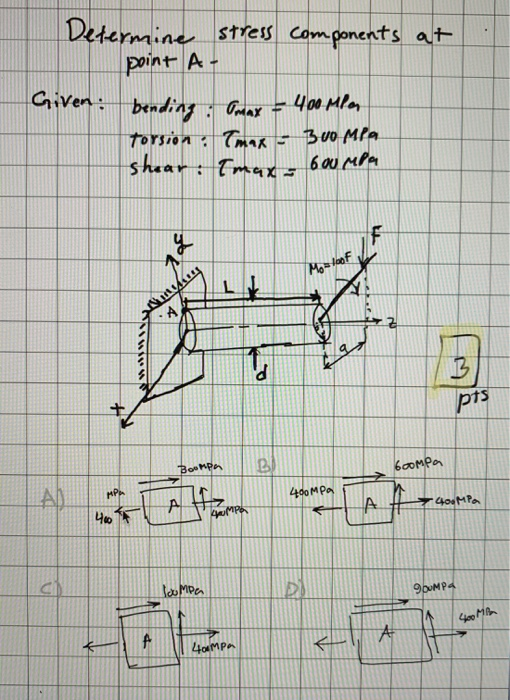 Determine stress components at
point A -
Given: bending: σmax = 400 MPa
torsion: τmax = 300 MPa
shear: τmax = 600 MPa
y
F
Mo=100F
L
A
z
a
d
x
3
pts
A)
300MPa
MPa
400
A
400MPa
B)
600MPa
400MPa
A
400MPa
C)
100MPa
A
400MPa
D)
900MPa
A
400MPa